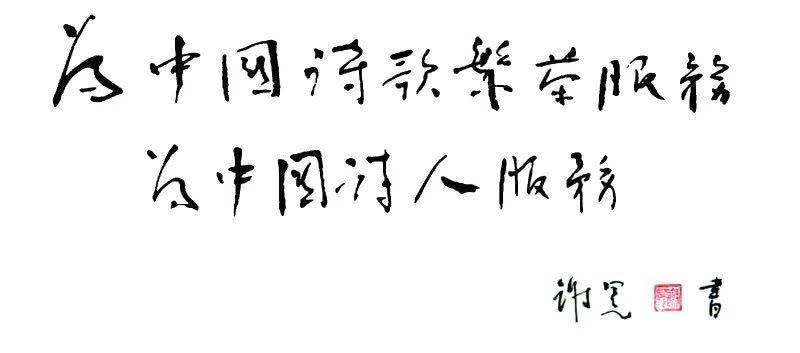 为中國诗歌繁荣服務
为中國诗人服务
谢冕 書